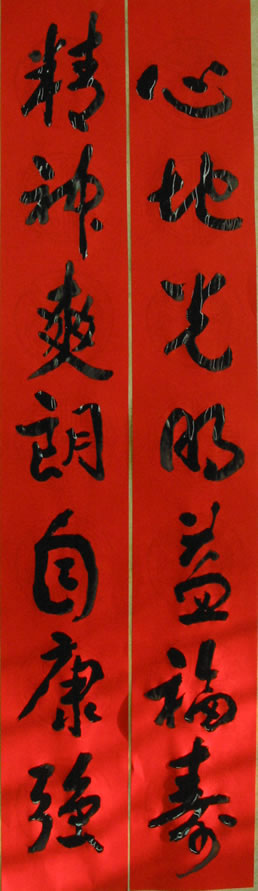 心地光明益福寿
精神爽朗自康强